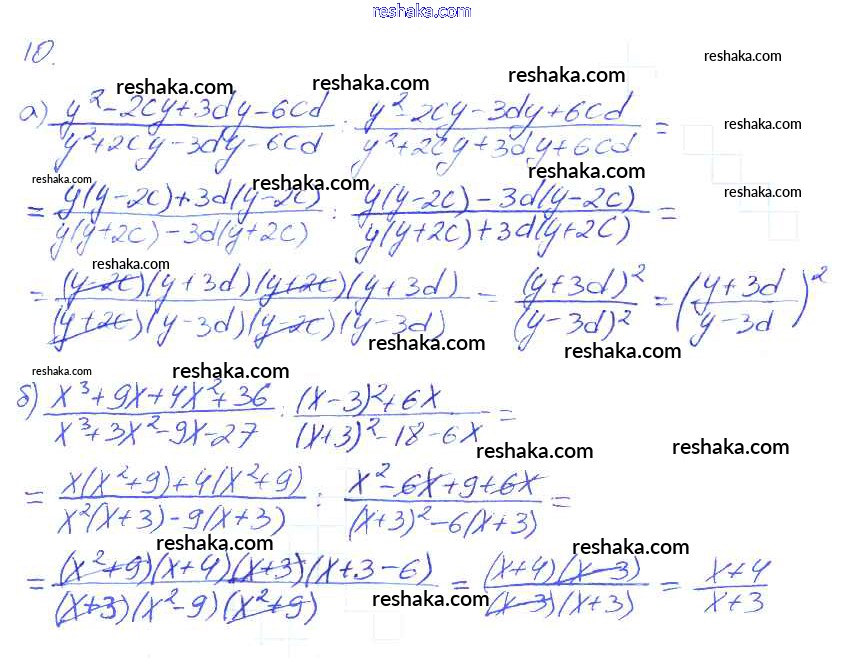 reshaka.com
10.
reshaka.com
reshaka.com reshaka.com reshaka.com
а) (y² - 2cy + 3dy - 6cd)/(y² + 2cy - 3dy - 6cd) : (y² - 2cy - 3dy + 6cd)/(y² + 2cy + 3dy + 6cd) =
reshaka.com
reshaka.com reshaka.com reshaka.com reshaka.com
= (y(y - 2c) + 3d(y - 2c))/(y(y + 2c) - 3d(y + 2c)) : (y(y - 2c) - 3d(y - 2c))/(y(y + 2c) + 3d(y + 2c)) =
reshaka.com
= ((y - 2c)(y + 3d)(y + 2c)(y + 3d))/((y + 2c)(y - 3d)(y - 2c)(y - 3d)) = (y + 3d)²/(y - 3d)² = ((y + 3d)/(y - 3d))²
reshaka.com reshaka.com
reshaka.com reshaka.com
б) (x³ + 9x + 4x² + 36)/(x³ + 3x² - 9x - 27) : ((x - 3)² + 6x)/((x + 3)² - 18 - 6x) =
reshaka.com reshaka.com
= (x(x² + 9) + 4(x² + 9))/(x²(x + 3) - 9(x + 3)) : (x² - 6x + 9 + 6x)/((x + 3)² - 6(x + 3)) =
reshaka.com reshaka.com
= ((x² + 9)(x + 4)(x + 3)(x + 3 - 6))/((x + 3)(x² - 9)(x² + 9)) = ((x + 4)(x - 3))/((x - 3)(x + 3)) = (x + 4)/(x + 3)
reshaka.com